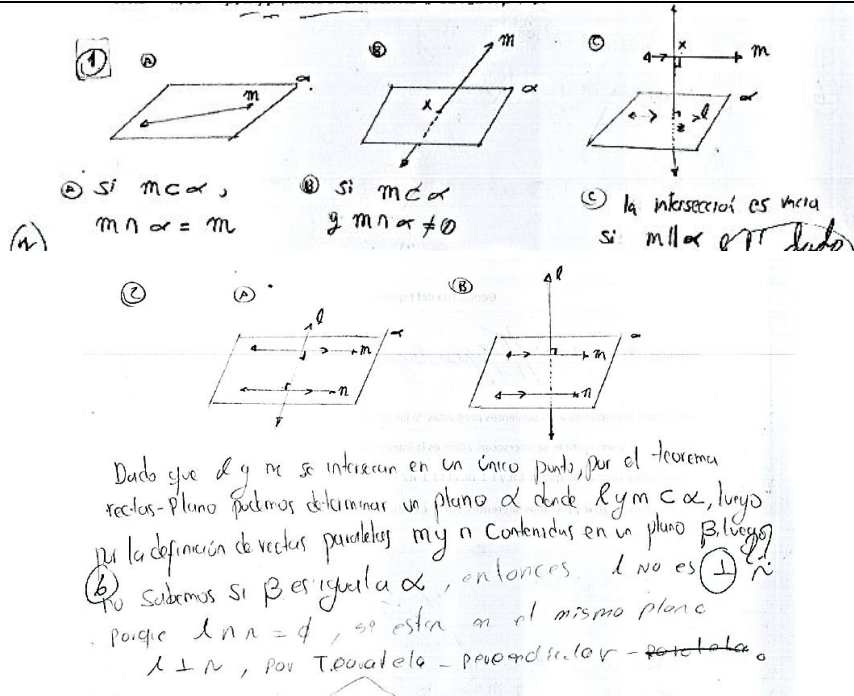 1 A B C
α m
m α x
x m α l
A Si m⊂α, B Si m⊄α C la intersección es vacia
m∩α = m y m∩α ≠ ∅ si m∥α dado
2 A B
l α m n
l α m n
Dado que l y m se intersecan en un único punto, por el teorema
rectas-Plano podemos determinar un plano α donde l y m ⊂ α, luego
por la definición de rectas paralelas m y n Contenidas en un plano β, luego
no Sabemos si β es igual a α, entonces l no es ⊥ n
6
porque l∩n = ϕ, si estan en el mismo plano
l ⊥ n, por T. paralela - perpendicular - paralela.